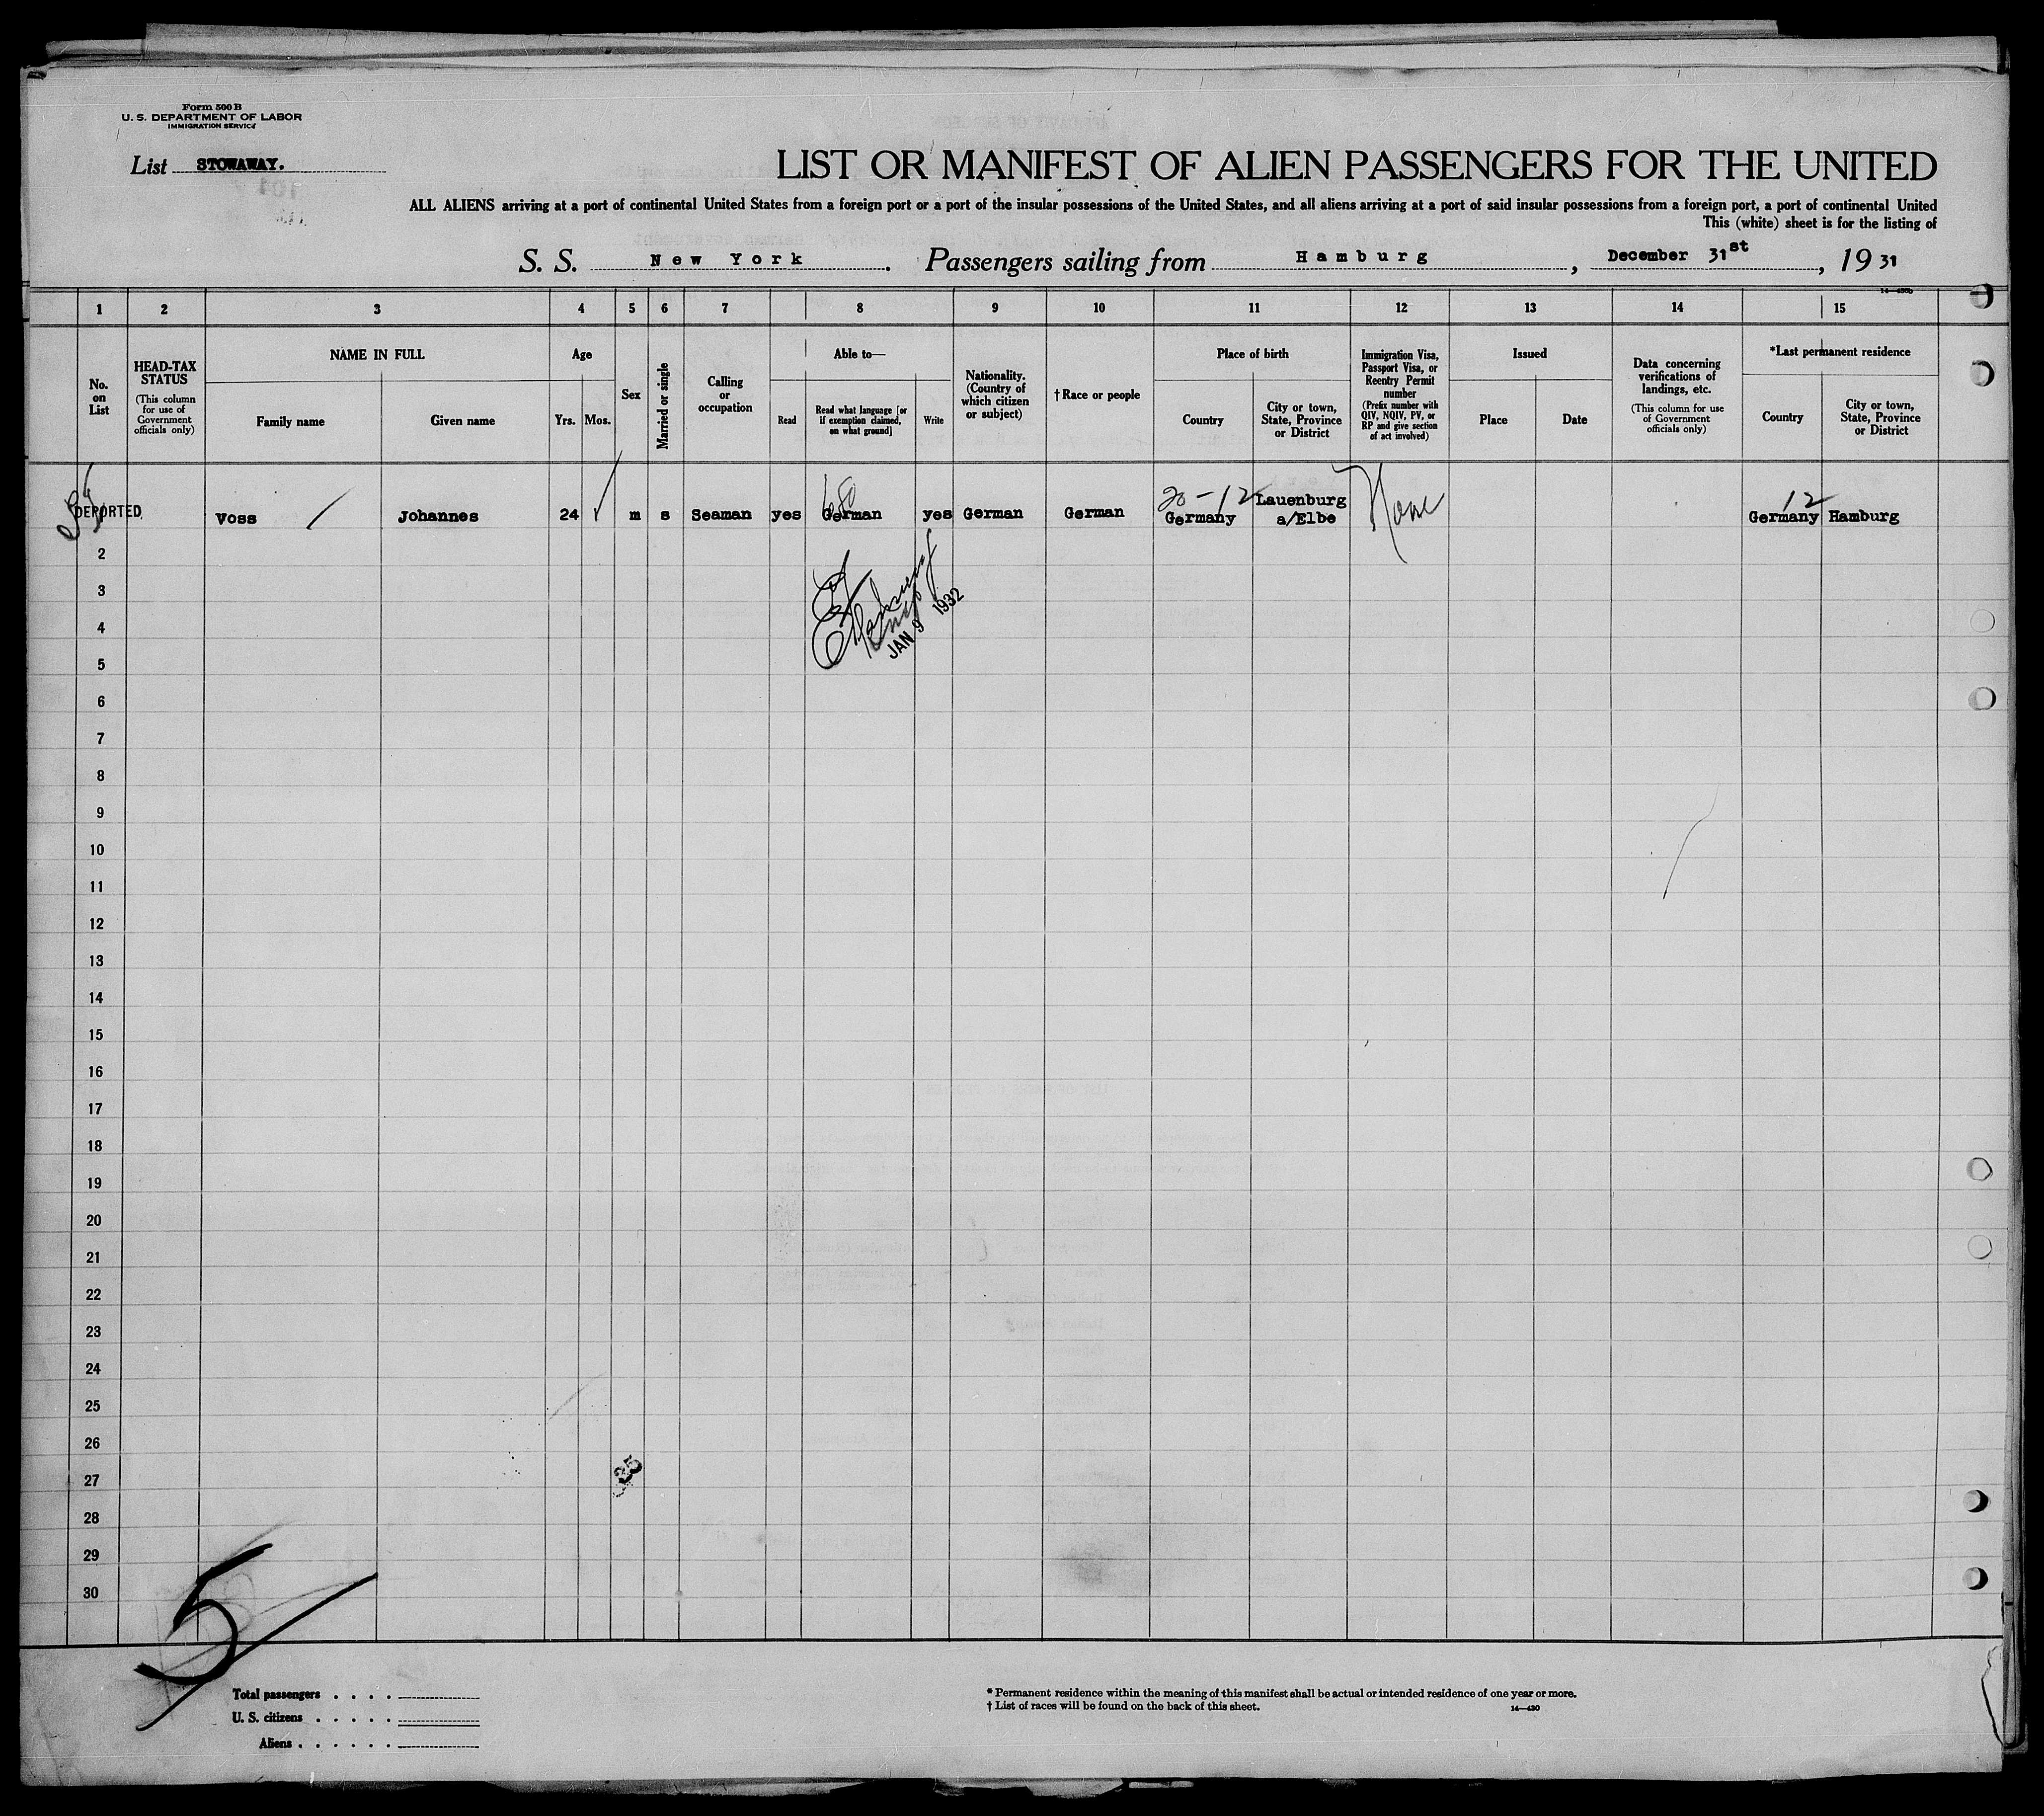 Form 500 B
U. S. DEPARTMENT OF LABOR
IMMIGRATION SERVICE
List STOWAWAY.
LIST OR MANIFEST OF ALIEN PASSENGERS FOR THE UNITED
ALL ALIENS arriving at a port of continental United States from a foreign port or a port of the insular possessions of the United States, and all aliens arriving at a port of said insular possessions from a foreign port, a port of continental United
This (white) sheet is for the listing of
S. S. New York. Passengers sailing from Hamburg, December 31st, 19 31
1 2 3 4 5 6 7 8 9 10 11 12 13 14 15
No. on List
HEAD-TAX STATUS (This column for use of Government officials only)
NAME IN FULL
Family name
Given name
Age
Yrs. Mos.
Sex
Married or single
Calling or occupation
Able to—
Read
Read what language [or if exemption claimed, on what ground]
Write
Nationality. (Country of which citizen or subject)
†Race or people
Place of birth
Country
City or town, State, Province or District
Immigration Visa, Passport Visa, or Reentry Permit number (Prefix number with QIV, NQIV, PV, or RP and give section of act involved)
Issued
Place
Date
Data concerning verifications of landings, etc. (This column for use of Government officials only)
*Last permanent residence
Country
City or town, State, Province or District
20-12 Lauenburg 12
DEPORTED Voss Johannes 24 m s Seaman yes German yes German German Germany a/Elbe None Germany Hamburg
2
3
4
JAN 9 1932
5
6
7
8
9
10
11
12
13
14
15
16
17
18
19
20
21
22
23
24
25
26
35
27
28
29
30
5
Total passengers . . . .
U. S. citizens . . . . .
Aliens . . . . . .
* Permanent residence within the meaning of this manifest shall be actual or intended residence of one year or more.
† List of races will be found on the back of this sheet.
14—430